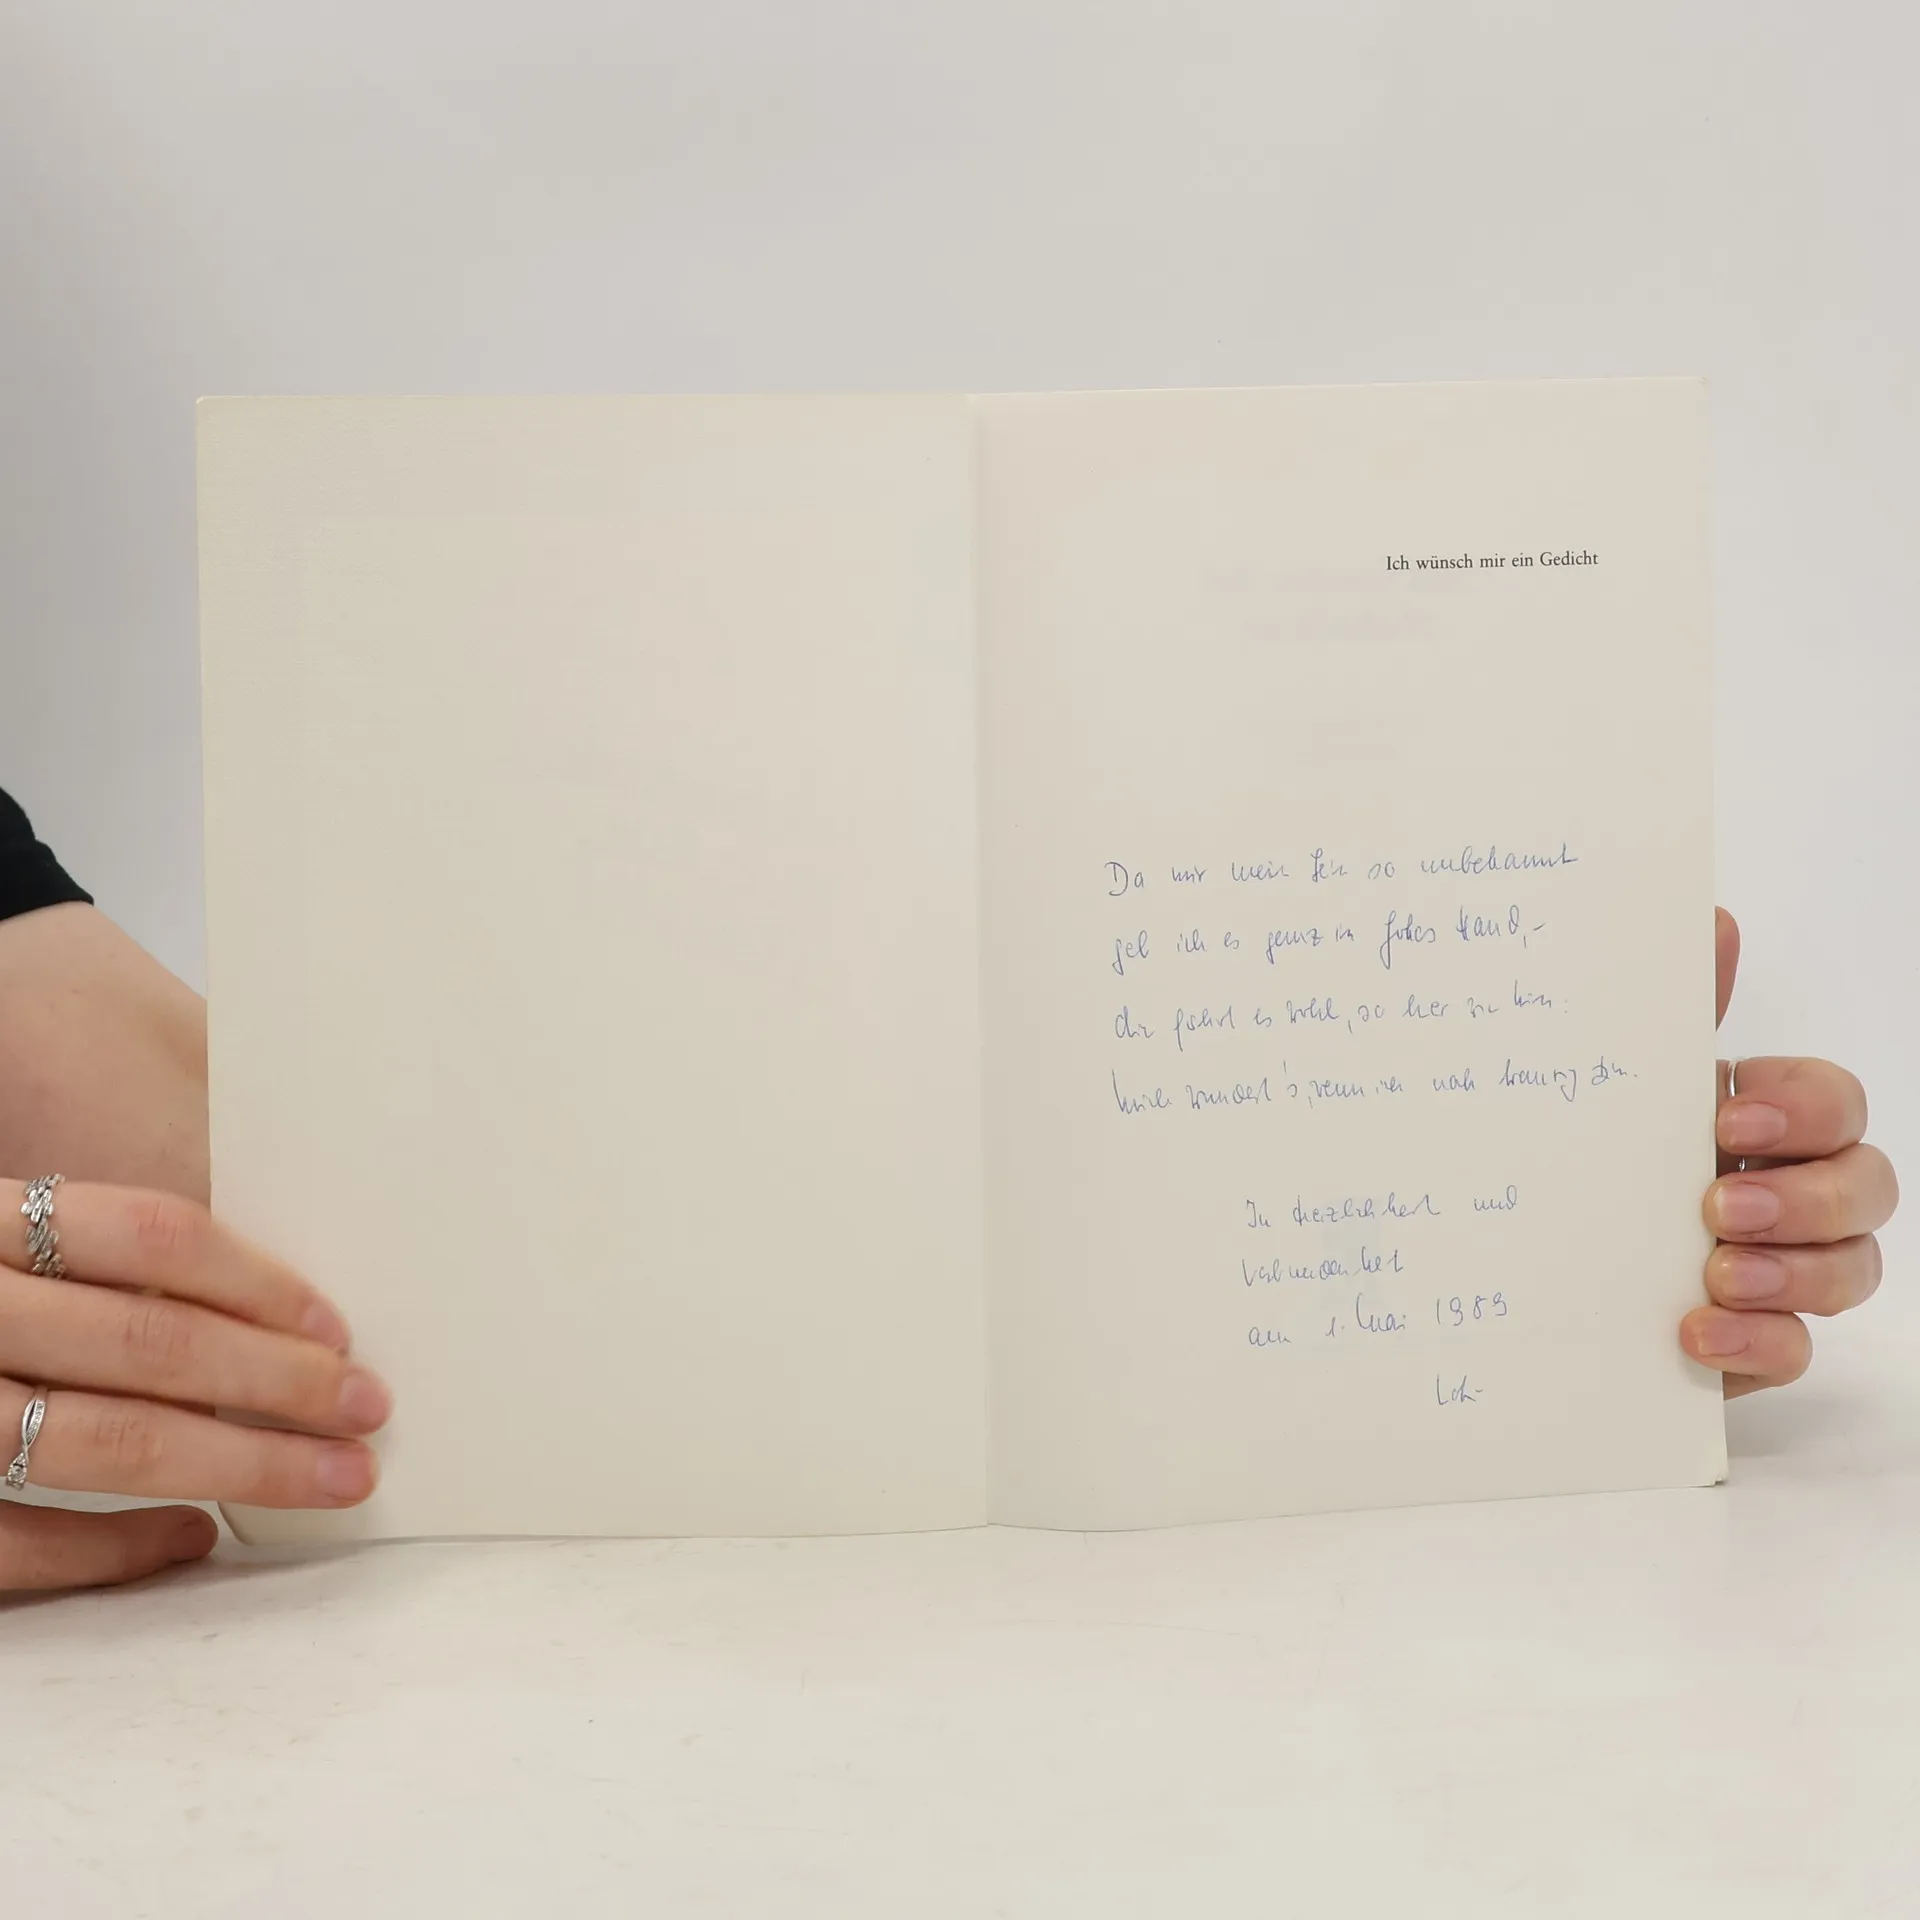 Ich wünsch mir ein Gedicht
Da mir mein Sein so unbekannt
geb ich es ganz in Gottes Hand,-
die führt es wohl, so her wie hin:
Mich wundert's, wenn ich noch traurig bin.
In Herzlichkeit und
Verbundenheit
am 1. Mai 1989